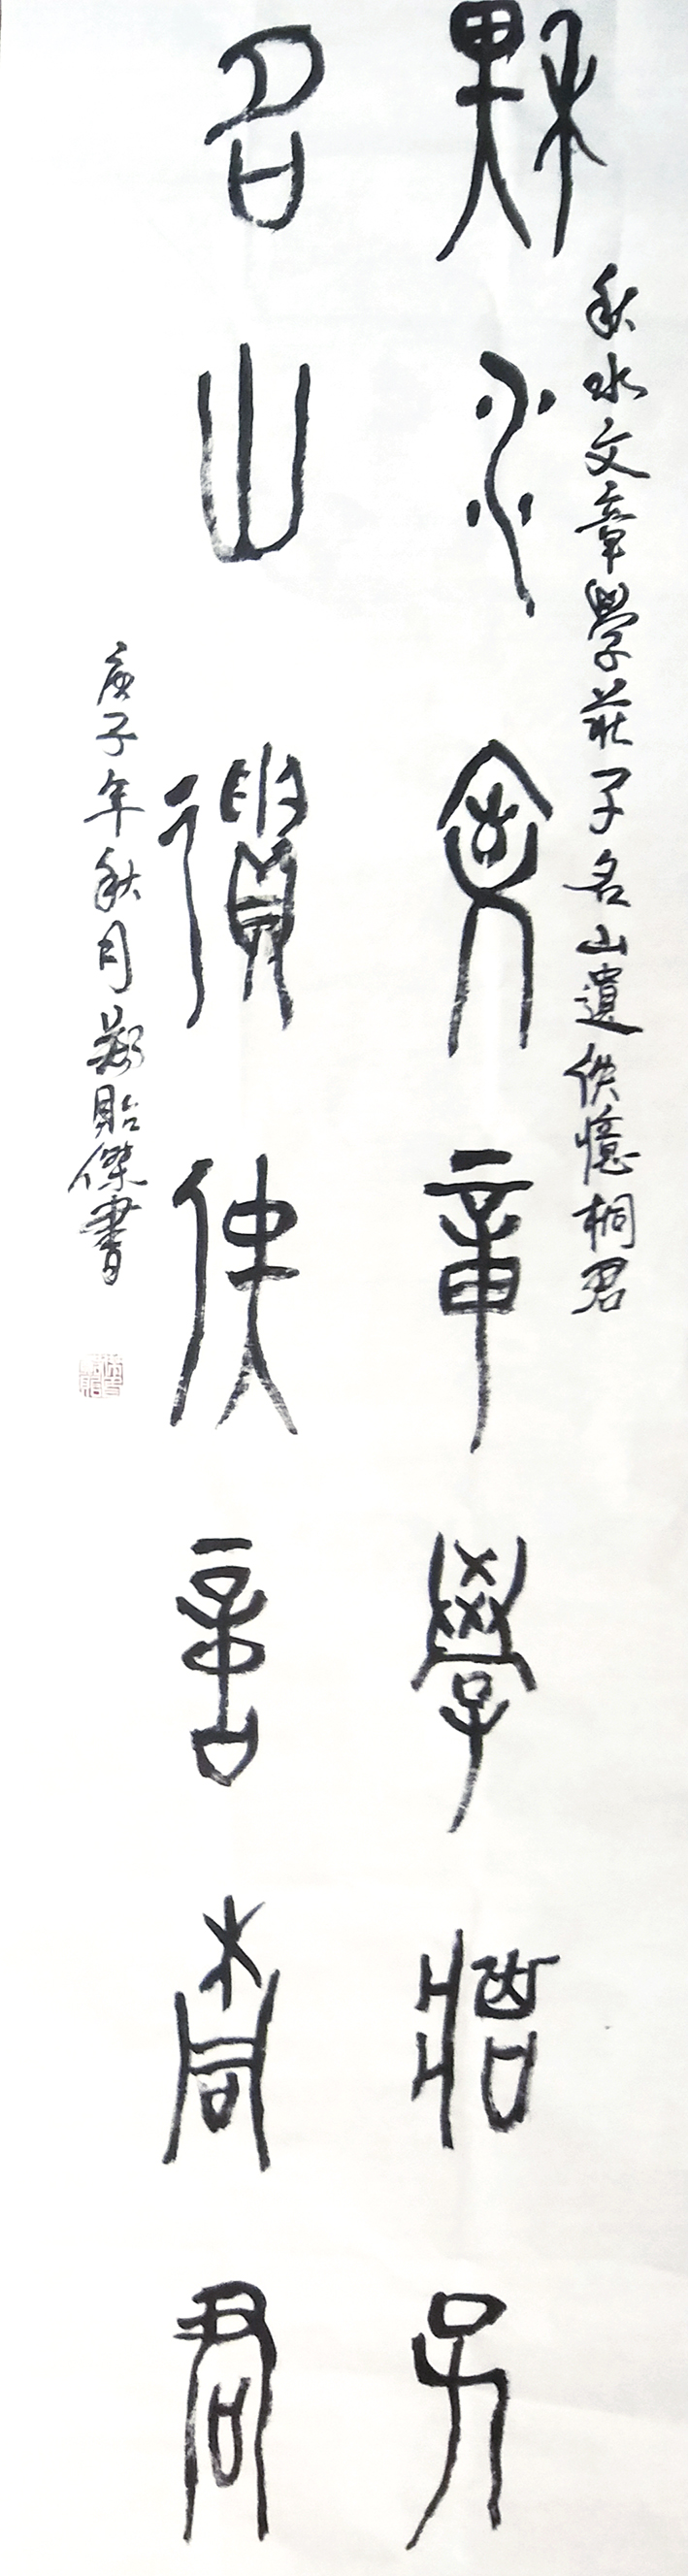 秋水文章學莊子
名山遺佚意桐君
秋水文章學莊子名山遺佚憶桐君
庚子年秋月鄭貽傑書